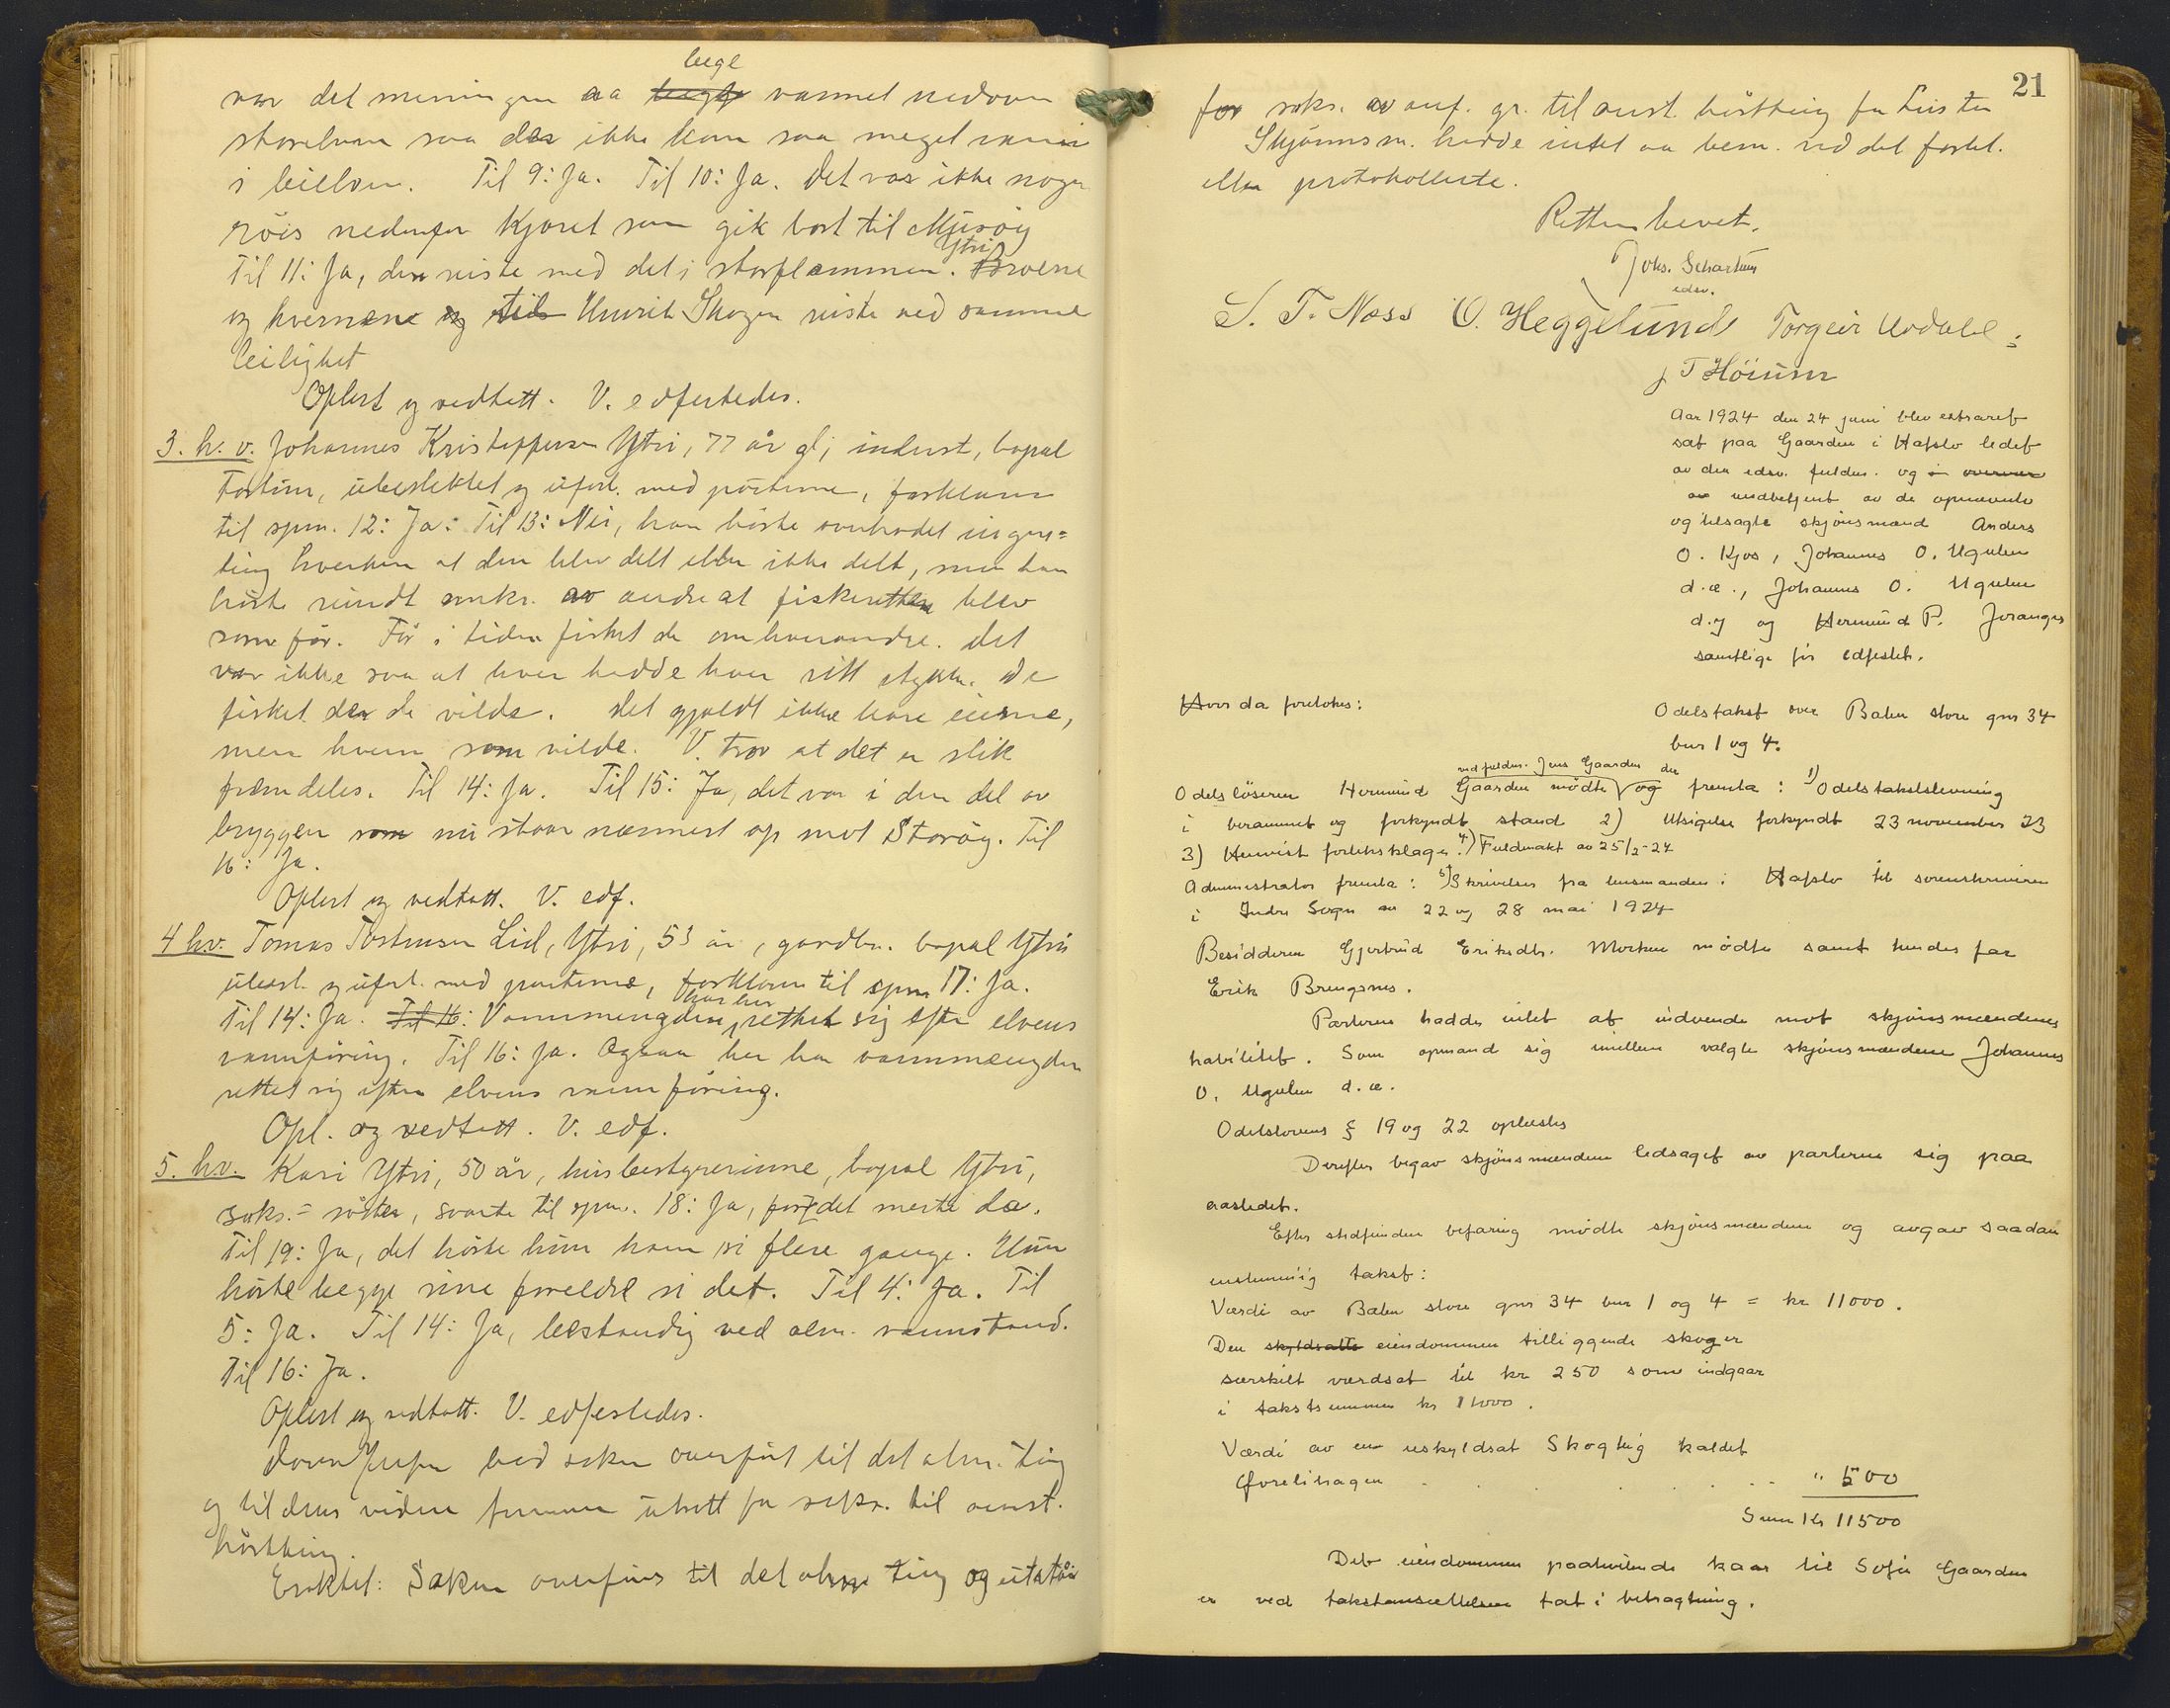 lege
var det meningen aa vannet nedover
storelven saa der ikke kom saa meget vann
i leilven. Til 9: Ja. Til 10: Ja. Det var ikke nogen
röis nedenfor Kjöret som gik bort til Mjisöy
Ytri
Til 11: Ja, den reiste med det i storflammen. Broene
og kvernene og Skogen reiste ved samme
leilighet
Oplest og vedtatt. V. edfestedes.
3. h. v. Johannes Kristoffersen Ytri, 77 år gl, inderst, bopæl
Fortun, ubeslektet og uforb. med parterne, forklarer
til spm. 12: Ja: Til 13: Nei, han hörte overhodet ingen=
ting hverken at den blev delt eller ikke delt, men han
hörte av andre at fiskeretten blev
som för. För i tiden fisket de om hverandre. Det
var ikke saa at hver hadde hver sitt stykke. De
fisket der de vilde. Det gjaldt ikke bare eierne,
men hvem som vilde. V. tror at det er slik
fremdeles. Til 14: Ja. Til 15: Ja, det var i den del av
bryggen som nu staar nærmest op mot Storöy. Til
16: Ja.
Oplest og vedtatt. V. edf.
4 h.v. Tomas Torstensen Lid, Ytri, 53 år, gardbr. bopæl Ytri
ubesl. og uforb. med parterne, forklarer til spm 17: Ja.
har her
Til 14: Ja. Til 16: Vannmengden rettet sig efter elvens
vannföring. Til 16: Ja. Ogsaa her har vannmængden
rettet sig efter elvens vannföring.
Opl. og vedtatt. V. edf.
5. h.v. Kari Ytri, 50 år, husbestyrerinne, bopæl Ytri,
saks. söster, svarte til spm. 18: Ja, for det meste da.
Til 19: Ja, det hörte hun ham si flere gange. Hun
hörte begge sine foreldre si det. Til 4: Ja. Til
5: Ja. Til 14: Ja, bestandig ved alm. vannstand.
Til 16: Ja.
Oplest og vedtatt. V. edfestedes.
bad saken overfört til det alm. ting
og til dens videre fremme utsatt for saks. til anst.
hörtting.
Eroktet: Saken overföres til det alm. ting og utstår
21
for saks. av anf. gr. til anst. hörtting for Luster
Skjönnsm. hadde intet aa bem. ved det fortel.
eller protokollerte.
Retten hevet.
Johs. Schartum
edsv.
S. T. Næss O. Heggelund Torgeir Urdahl
J T Höium
Aar 1924 den 24 juni blev extraret
sat paa Gaarden i Hafslo ledet
av den edsv. fuldm. og i overvær
av undbetjent av de opnævnte
og tilsagte skjönsmænd Anders
O. Kjos, Johannes O. Ugulen
d.æ., Johannes O. Ugulen
d.y og Hermund P. Joranger
samtlige för edfestet.
Hvor da foretokes:
Odelstakst over Balen store gnr 34
bnr 1 og 4.
ved fuldm. Jens Gaarden der
Odelslöseren Hermund Gaarden mödte og fremla: 1) Odelstakstslevning
i berammet og forkyndt stand 2) Utsigelse forkyndt 23 november 23
3) Henvist forliksklage. 4) Fuldmakt av 25/2-24
Administrator fremla: 5) Skrivelser fra lensmanden i Hafslo til sorenskriveren
i Indre Sogn av 22 og 28 mai 1924
Besidderen Gjertrud Eriksdtr. Morken mödte samt hendes far
Erik Brengsnes.
Parterne hadde intet at indvende mot skjönsmændenes
habilitet. Som opmand sig imellem valgte skjönsmændene Johannes
O. Ugulen d.æ.
Odelslovens § 19 og 22 oplæstes
Derefter begav skjönsmændene ledsaget av parterne sig paa
aastedet.
Efter stedfunden befaring mödte skjönsmændene og avgav saadan
enstemmig takst:
Værdi av Balen store gnr 34 bnr 1 og 4 = kr 11000.
Den skyldsatte eiendommen tilliggende skog er
særskilt værdsat til kr 250 som indgaar
i takstsummen kr 11000.
Værdi av en uskyldsat Skogteig kaldet
Govelihagen . . . . . " 500
Sum Kr 11500
Det eiendommen paahvilende kaar til Sofie Gaarden
er ved takstansættelsen tat i betragtning.